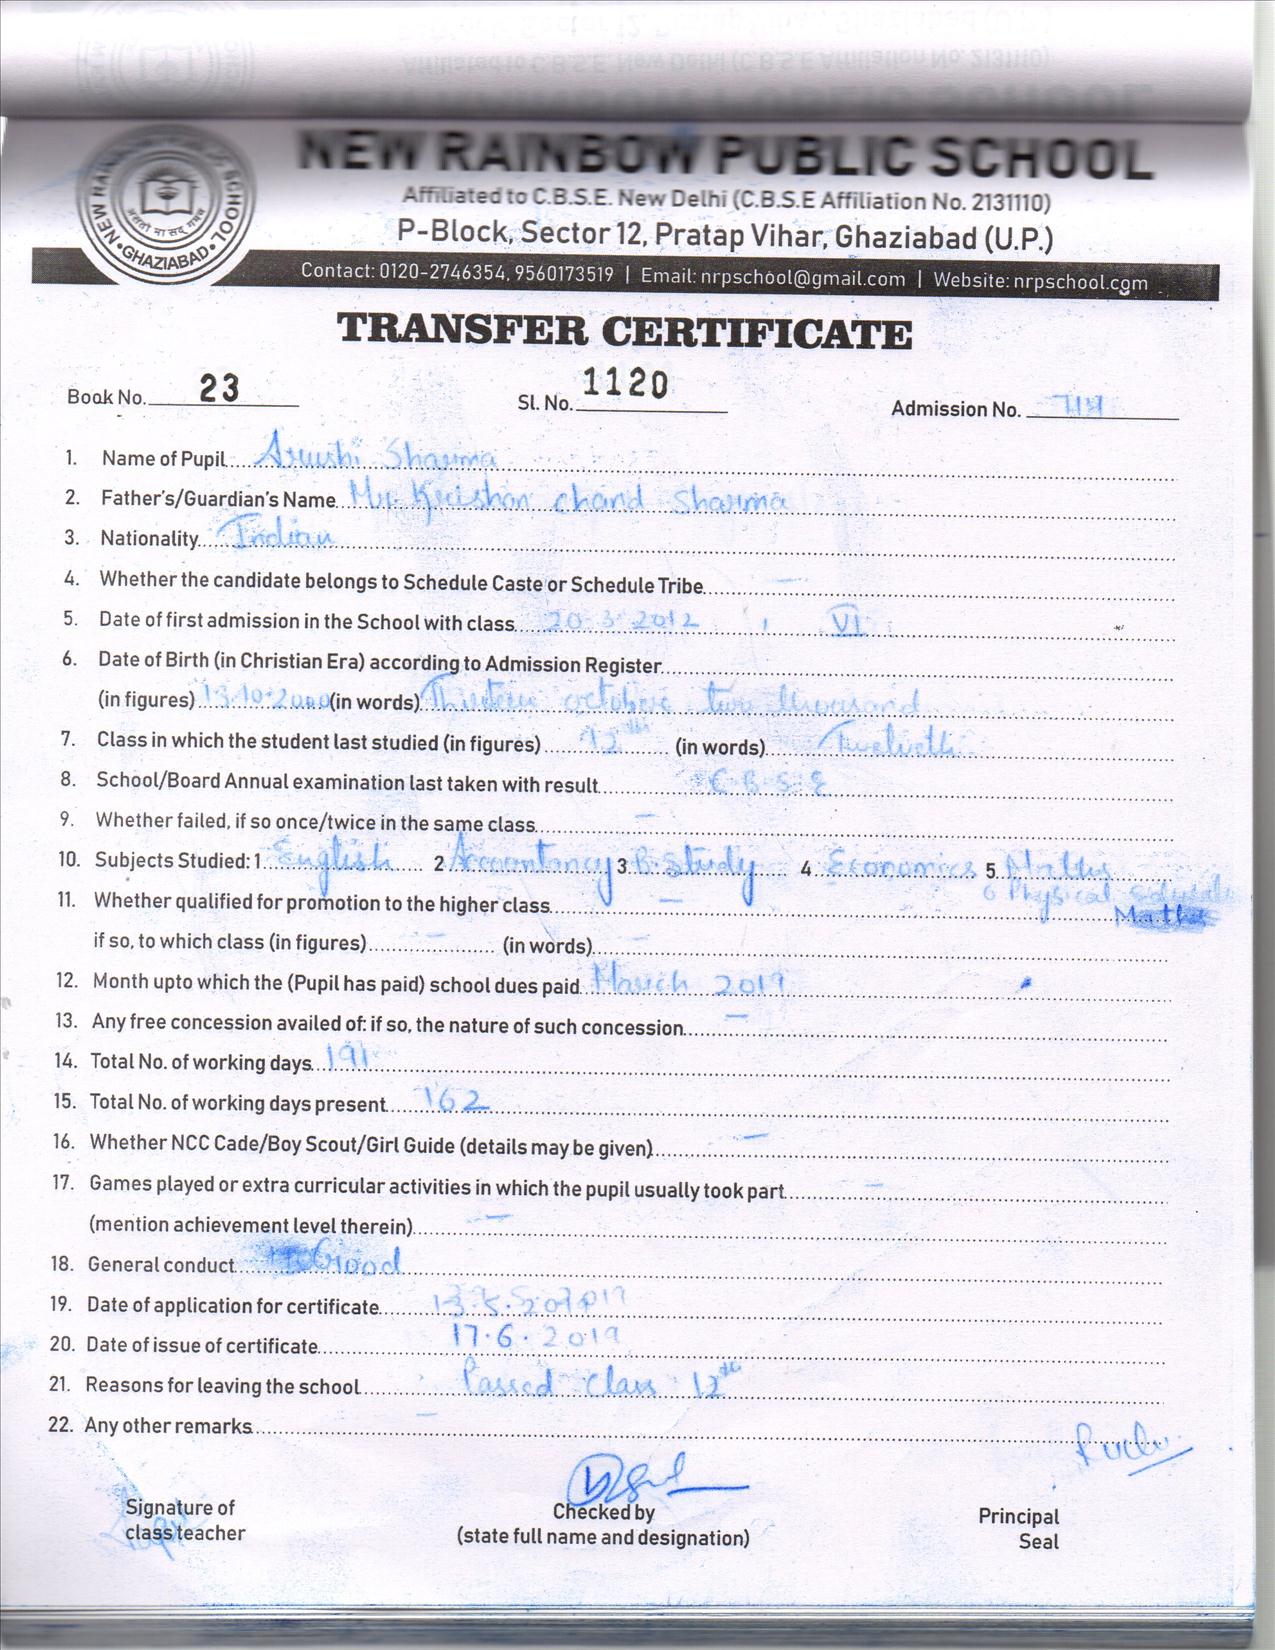 NEW RAINBOW PUBLIC SCHOOL
Affiliated to C.B.S.E. New Delhi (C.B.S.E Affiliation No. 2131110)
P-Block, Sector 12, Pratap Vihar, Ghaziabad (U.P.)
NEW RAINBOW PUBLIC SCHOOL • GHAZIABAD •
असतो मा सद् गमय
Contact: 0120-2746354, 9560173519 | Email: nrpschool@gmail.com | Website: nrpschool.com
TRANSFER CERTIFICATE
Book No. 23 Sl. No. 1120 Admission No.
1. Name of Pupil Arushi Sharma
2. Father's/Guardian's Name Mr. Krishan chand Sharma
3. Nationality Indian
4. Whether the candidate belongs to Schedule Caste or Schedule Tribe —
5. Date of first admission in the School with class 20.3.2012 , VI
6. Date of Birth (in Christian Era) according to Admission Register
(in figures) 13.10.2000 (in words) Thirteen october two thousand
7. Class in which the student last studied (in figures) 12th (in words) Twelveth
8. School/Board Annual examination last taken with result C.B.S.E
9. Whether failed, if so once/twice in the same class —
10. Subjects Studied: 1 English 2 Accountancy 3 B.Study 4 Economics 5. Maths
6 Physical
11. Whether qualified for promotion to the higher class — Maths
if so, to which class (in figures) — (in words) —
12. Month upto which the (Pupil has paid) school dues paid March 2019
13. Any free concession availed of: if so, the nature of such concession —
14. Total No. of working days 191
15. Total No. of working days present 162
16. Whether NCC Cade/Boy Scout/Girl Guide (details may be given) —
17. Games played or extra curricular activities in which the pupil usually took part —
(mention achievement level therein) —
18. General conduct Good
19. Date of application for certificate
20. Date of issue of certificate 17.6.2019
21. Reasons for leaving the school Passed class 12th
22. Any other remarks —
Signature of
class teacher
Checked by
(state full name and designation)
Principal
Seal